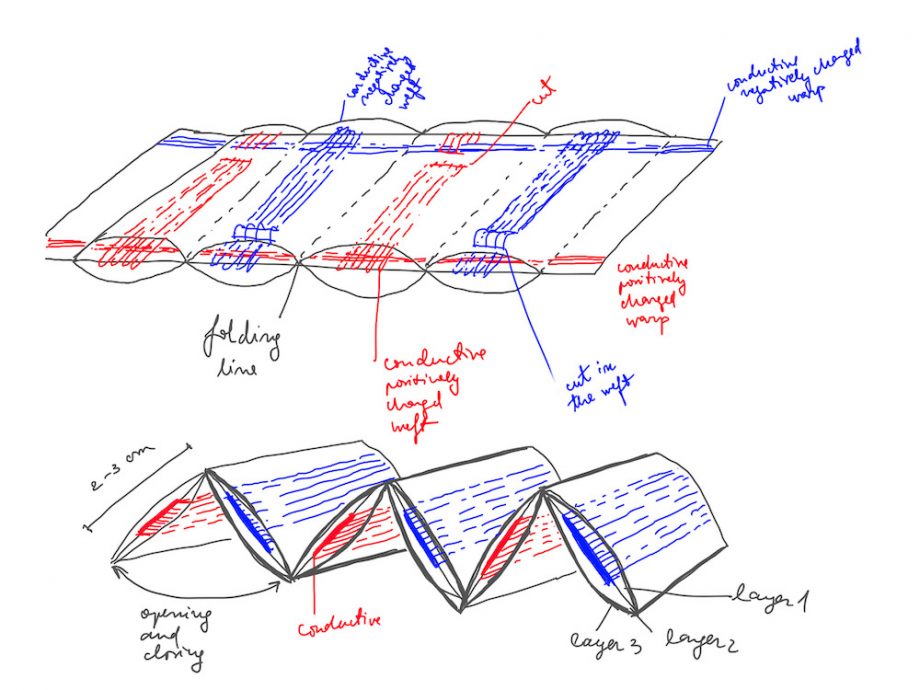 conductive
negatively
charged
weft
cut
conductive
negatively charged
warp
conductive
positively
charged
warp
folding
line
conductive
positively
charged
weft
cut in
the weft
2-3 cm
opening
and
closing
conductive
layer 1
layer 3 layer 2